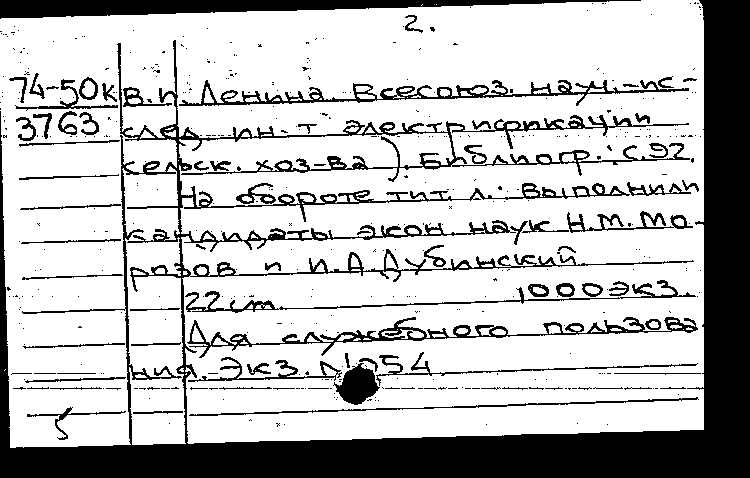 2.
74-50к В.И. Ленина. Всесоюз. науч.-ис-
3763 след. ин-т электрификации
сельск. хоз-ва). Библиогр.: с. 92.
На обороте тит. л.: Выполнили
кандидаты экон. наук Н.М. Мо-
розов и И.А. Дубинский.
22 см. 1000 экз.
Для служебного пользова-
ния. Экз. №054
5